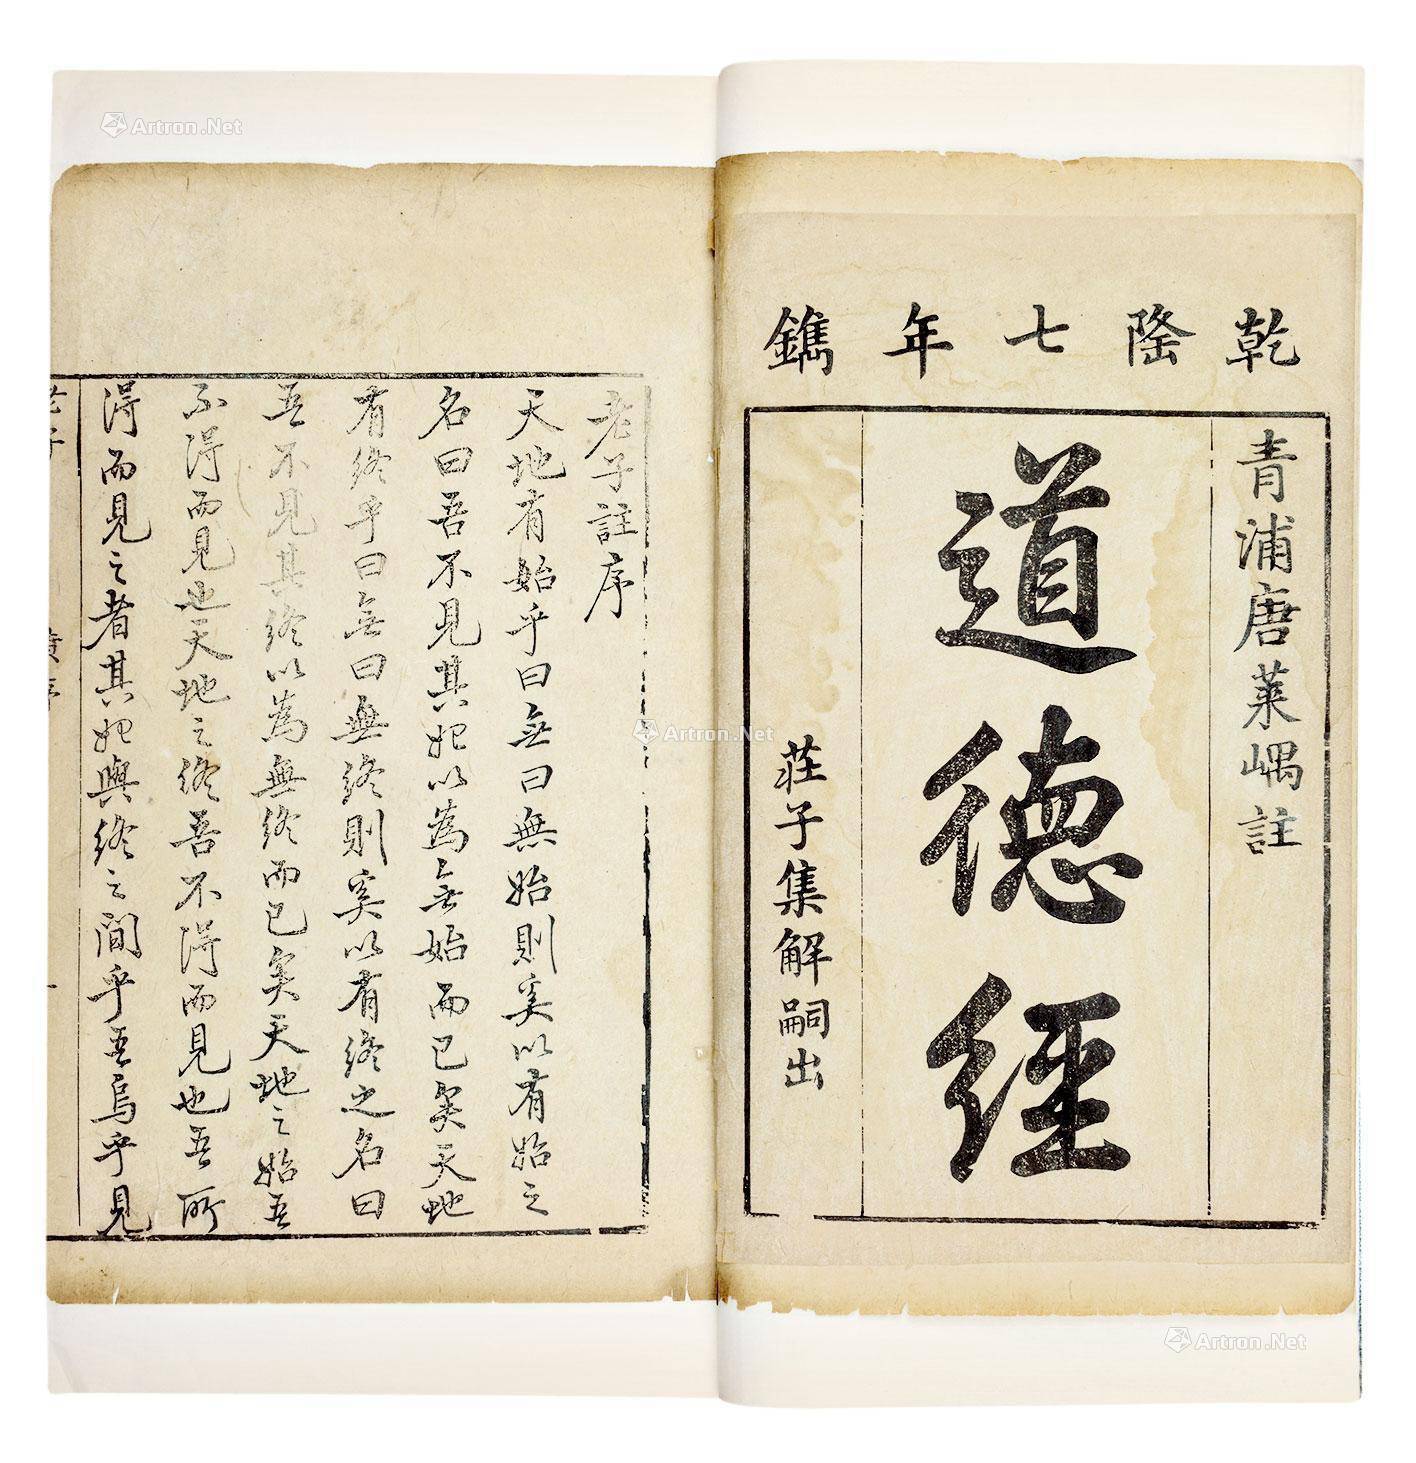 乾隆七年鐫
青浦唐萊嵎註
道德經
荘子集解嗣出
老子註序
天地有始乎曰無曰無始則奚以有始之
名曰吾不見其始以為無始而已矣天地
有終乎曰無曰無終則奚以有終之名曰
吾不見其終以為無終而已矣天地之始吾
不得而見也天地之終吾不得而見也吾所
得而見之者其始與終之間乎吾烏乎見
Artron.Net
Artron.Net
Artron.Net